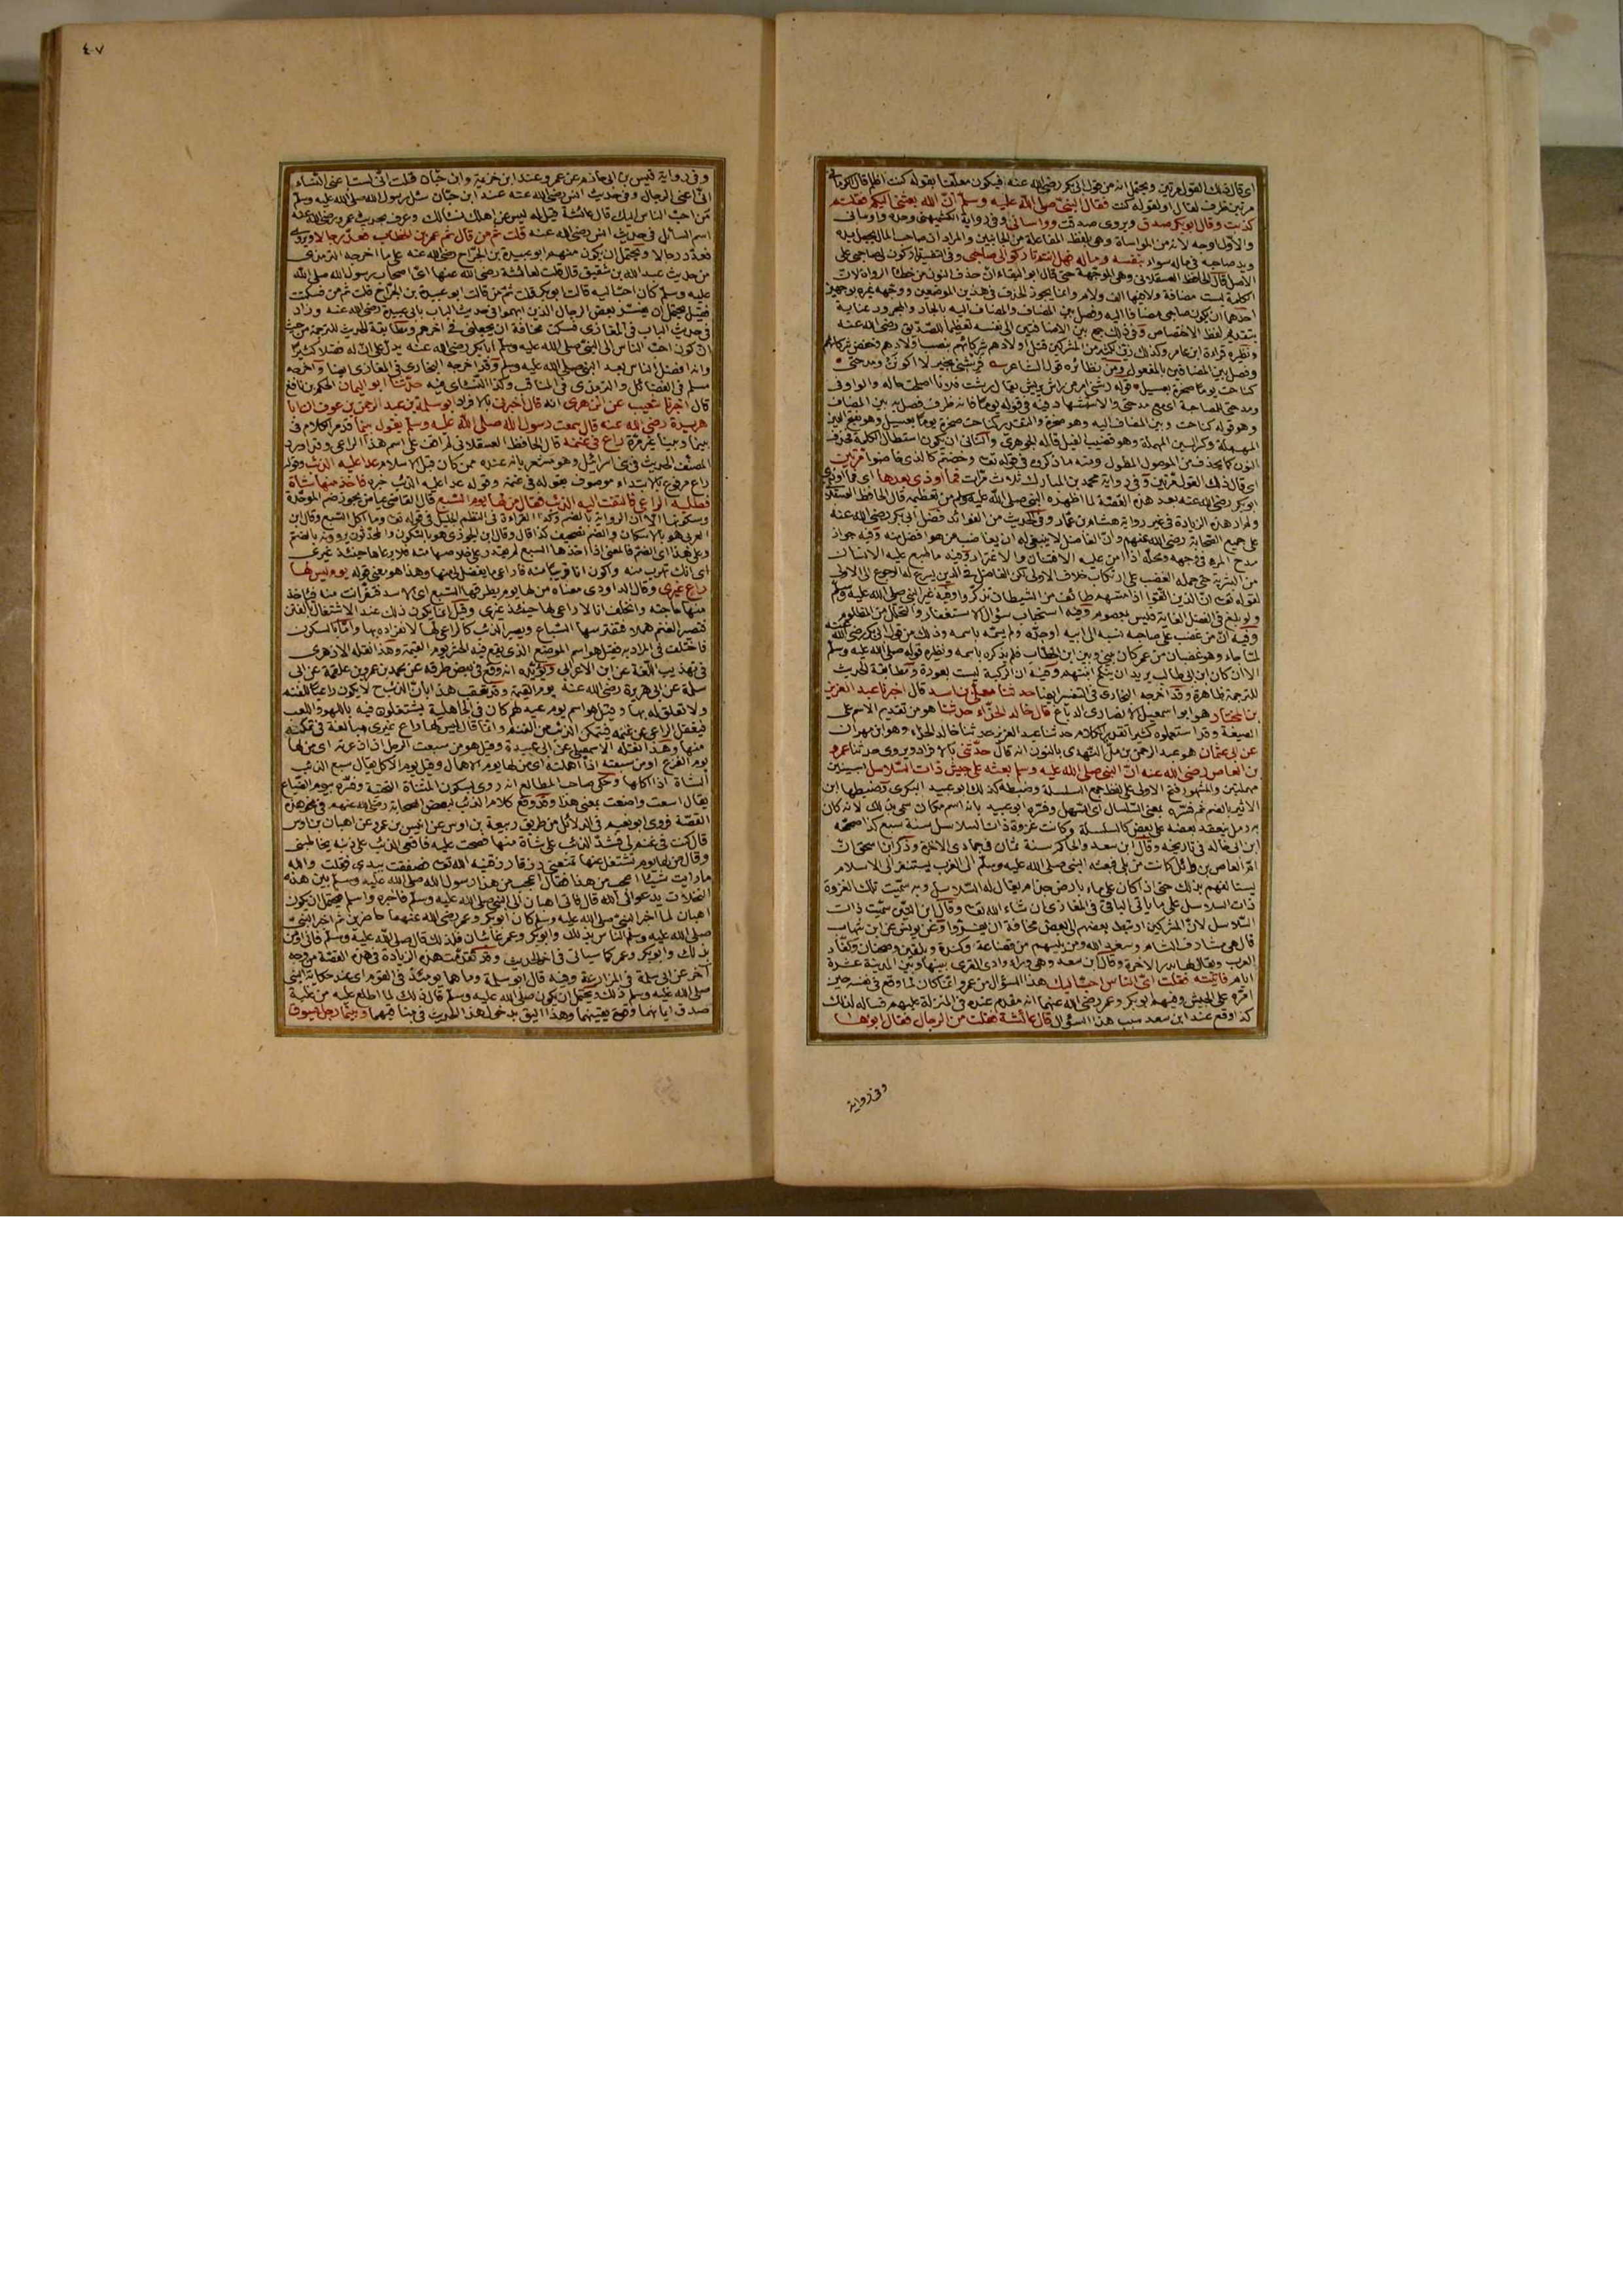 اى قال ذلك القول مرتين ويحتمل انه من قول ابى بكر رضى الله عنه فيكون معلقا بقوله كنت اظلم قال
مرتين ظرف لقال او لقوله كنت فقال النبى صلى الله عليه وسلم ان الله بعثنى اليكم فقلتم
كذبت وقال ابو بكر صدق ويروى صدقت وواسانى وفى رواية الكشميهنى وحده واوسانى
والاول اوجه لانه من المواساة وهى بلفظ المفاعلة من الجانبين والمراد ان صاحب المال يجعل يده
ويد صاحبه فى ماله سواء بنفسه وماله فهل انتم تاركوا لى صاحبى وفى التفسير تاركون لى صاحبى على
الاصل قال الحافظ العسقلانى وهى الموجهة حتى قال ابو البقاء ان حذف النون من خطأ الرواة لان
الكلمة ليست مضافة ولا فيها الف ولام وانما يجوز الحذف فى هذين الموضعين ووجهه غيره بوجهين
احدهما ان يكون صاحبى مضافا اليه وفصل بين المضاف والمضاف اليه بالجار والمجرور عناية
بتقديم لفظ الاختصاص وفى ذلك جمع بين الاضافتين الى نفسه تعظيما للصديق رضى الله عنه
ونظيره قراءة ابن عامر وكذلك زين لكثير من المشركين قتل اولادهم شركائهم بنصب اولادهم وخفض شركائهم
وفصل بين المضافين بالمفعول ومن نظائره قول الشاعر فرشنى بخير لا اكونن ومدحتى
كناحت يوما صخرة بعسيل قوله رشنى امر من راش يريش يقال رشت فلانا اصلحت حاله والواو فى
ومدحتى للمصاحبة اى مع مدحتى والاستشهاد فيه فى قوله يوما فانه ظرف فصل به بين المضاف
وهو قوله كناحت وبين المضاف اليه وهو صخرة والتقدير كناحت صخرة يوما بعسيل وهو بفتح العين
المهملة وكسر السين المهملة وهو قضيب الفيل قاله الجوهرى والثانى ان يكون استطال الكلمة فحذف
النون كما يحذف من الموصول المطول ومنه ما ذكروه فى قوله تعالى وخضتم كالذى خاضوا مرتين
اى قال ذلك القول مرتين وفى رواية محمد بن المبارك ثلاث مرات فما اوذى بعدها اى فما اوذى
ابو بكر رضى الله عنه بعد هذه القصة لما اظهره النبى صلى الله عليه وسلم من تعظيمه قال الحافظ العسقلانى
ولم ار هذه الزيادة فى غير رواية هشام بن عمار وفى الحديث من الفوائد فضل ابى بكر رضى الله عنه
على جميع الصحابة رضى الله عنهم وان الفاضل لا ينبغى له ان يغاضب من هو افضل منه وفيه جواز
مدح المرء فى وجهه ومحله اذا امن عليه الافتتان والاغترار وفيه ما طبع عليه الانسان
من البشرية حتى حمله الغضب على ارتكاب خلاف الاولى لكن الفاضل فى الدين يسرع له الرجوع الى الاولى
لقوله تعالى ان الذين اتقوا اذا مسهم طائف من الشيطان تذكروا وفيه غير النبى صلى الله عليه وسلم
ولو بلغ فى الفضل الغاية فليس بمعصوم وفيه استحباب سؤال الاستغفار والتحلل من المظلوم
وفيه ان من غضب على صاحبه نسبه الى ابيه او جده ولم يسمه باسمه وذلك من قول ابى بكر رضى الله عنه
لما جاء وهو غضبان من عمر كان بينى وبين ابن الخطاب فلم يذكره باسمه ونظيره قوله صلى الله عليه وسلم
الا ان كان ابن ابى طالب يريد ان ينكح ابنتهم وفيه ان الركبة ليست بعورة ومطابقة الحديث
للترجمة ظاهرة وقد اخرجه البخارى فى التفسير ايضا حدثنا معلى بن اسد قال اخبرنا عبد العزيز
بن المختار هو ابو اسمعيل الانصارى الدباغ قال خالد الحذاء حدثنا هو من تقديم الاسم على
الصيغة وقد استعملوه كثيرا تقدير الكلام حدثنا عبد العزيز حدثنا خالد الحذاء وهو ابن مهران
عن ابى عثمان هو عبد الرحمن بن مل النهدى بالنون انه قال حدثنى بالافراد ويروى حدثنا عمرو
بن العاص رضى الله عنه ان النبى صلى الله عليه وسلم بعثه على جيش ذات السلاسل بسينين
مهملتين والمشهور فتح الاولى على لفظ جمع السلسلة وضبطه كذلك ابو عبيد البكرى وضبطها ابن
الاثير بالضم ثم فسره بمعنى السلسال اى السهل وفسره ابو عبيد بانه اسم مكان سمى بذلك لانه كان
به رمل ينعقد بعضه على بعض كالسلسلة وكانت غزوة ذات السلاسل سنة سبع كذا صححه
ابن ابى خالد فى تاريخه وقال ابن سعد والحاكم سنة ثمان فى جمادى الاخرة وذكر ابن اسحق ان
ام العاص بن وائل كانت من بلى فبعثه النبى صلى الله عليه وسلم الى العرب يستنفر الى الاسلام
يستالفهم بذلك حتى اذا كان على ماء بارض جذام يقال له السلاسل وبه سميت تلك الغزوة
ذات السلاسل على ما ياتى الباقى فى المغازى ان شاء الله تعالى وقال ابن التين سميت ذات
السلاسل لان المشركين ارتبط بعضهم الى بعض مخافة ان يفروا وعن يونس عن ابن شهاب
قال هى مشارف الشام وسعد الله ومن يليهم من قضاعة وكندة وبلقين
العرب ويقال لها بدر الاخرة وقال ابن سعد وهى وراء وادى القرى بينها وبين المدينة عشرة
ايام فاتيته فقلت اى الناس احب اليك هذا السؤال من عمرو انما كان لما وقع فى نفسه حين
امره على الجيش وفيهم ابو بكر وعمر رضى الله عنهما انه مقدم عنده فى المنزلة عليهم فساله لذلك
كذا وقع عند ابن سعد سبب هذا السؤال قال عائشة فقلت من الرجال فقال ابوها
وفى رواية
٤٠٧
وفى رواية قيس بن ابى حازم عن عمرو عند ابن خزيمة وابن حبان قلت انى لست اعنى النساء
انى اعنى الرجال وفى حديث انس رضى الله عنه عند ابن حبان سئل رسول الله صلى الله عليه وسلم
من احب الناس اليك قال عائشة قيل له ليس عن اهلك نسألك وعرف بحديث عمرو رضى الله عنه
اسم السائل فى حديث انس رضى الله عنه قلت ثم من قال ثم عمر بن الخطاب فعد رجالا ويروى
فعدد رجالا ويحتمل ان يكون منهم ابو عبيدة بن الجراح رضى الله عنه على ما اخرجه الترمذى
من حديث عبد الله بن شقيق قال قلت لعائشة رضى الله عنها اى اصحاب رسول الله صلى الله
عليه وسلم كان احب اليه قالت ابو بكر قلت ثم من قالت ابو عبيدة بن الجراح قلت ثم من فسكتت
فقيل يحتمل ان يفسر بعض الرجال الذين ابهموا فى حديث الباب بابى عبيدة رضى الله عنه وزاد
فى حديث الباب فى المغازى فسكت مخافة ان يجعلنى فى اخرهم ومطابقة الحديث للترجمة من حيث
ان كون احب الناس الى النبى صلى الله عليه وسلم ابا بكر رضى الله عنه يدل على ان له فضلا كثيرا
وانه افضل الناس بعد النبى صلى الله عليه وسلم وقد اخرجه البخارى فى المغازى ايضا واخرجه
مسلم فى الفضائل والترمذى فى المناقب وكذا النسائى فيه حدثنا ابو اليمان الحكم بن نافع
قال اخبرنا شعيب عن الزهرى انه قال اخبرنى بالافراد ابو سلمة بن عبد الرحمن بن عوف ان ابا
هريرة رضى الله عنه قال سمعت رسول الله صلى الله عليه وسلم يقول بينما قد مر الكلام فى
بينما وبينا غير مرة راع فى غنمه قال الحافظ العسقلانى لم اقف على اسم هذا الراعى وقد اورد
المصنف الحديث فى بنى اسرائيل وهو مشعر بانه عنده ممن كان قبل الاسلام عدا عليه الذئب وقوله
راع مرفوع بالابتداء موصوف بقوله فى غنمه وقوله عدا عليه الذئب خبره فاخذ منها شاة
فطلبه الراعى فالتفت اليه الذئب فقال من لها يوم السبع قال القاضى عياض يجوز ضم الموحدة
وسكونها الا ان الرواية بالضم وكذا القراءة فى النظم الجليل فى قوله تعالى وما اكل السبع وقال ابن
العربى هو بالاسكان والضم تصحيف كذا قال وقال ابن الجوزى هو بالسكون والمحدثون يروونه بالضم
وعلى هذا اى الضم فالمعنى اذا اخذها السبع لم يقدر على خلاصها منه فلا يرعاها حينئذ غيرى
اى انك تهرب منه واكون انا قريبا منه فاراعى ما يفضل لى منها وهذا هو معنى قوله يوم ليس لها
راع غيرى وقال الداودى معناه من لها يوم يطرقها السبع اى الاسد فتفر انت منه فياخذ
منها حاجته واتخلف انا لا راعى لها حينئذ غيرى وقيل انما يكون ذلك عند الاشتغال بالفتن
فتصير الغنم هملا فتفترسها السباع ويصير الذئب كالراعى لها لانفراده بها واما بالسكون
فاختلف فى المراد به فقيل هو اسم الموضع الذى يقع فيه الحشر يوم القيمة وهذا نقله الازهرى
فى تهذيب اللغة عن ابن الاعرابى ويؤيده انه وقع فى بعض طرقه عن محمد بن عمرو بن علقمة عن ابى
سلمة عن ابى هريرة رضى الله عنه يوم القيمة وقد تعقب هذا بان الذئب ح لا يكون راعيا للغنم
ولا تعلق له بها وقيل هو اسم يوم عيد لهم كان فى الجاهلية يشتغلون فيه باللهو واللعب
فيغفل الراعى عن غنمه فيتمكن الذئب من الغنم وانما قال ليس لها راع غيرى مبالغة فى تمكنه
منها وهذا نقله الاسمعيلى عن ابى عبيدة وقيل هو من سبعت الرجل اذا ذعرته اى من لها
يوم الفزع او من سبعته اذا اهملته اى من لها يوم الاهمال وقيل يوم الاكل يقال سبع الذئب
الشاة اذا اكلها وحكى صاحب المطالع انه روى بسكون المثناة التحتية وفسره بيوم الضياع
يقال اسعت واضعت بمعنى هذا وقد وقع كلام الذئب لبعض الصحابة رضى الله عنهم فى نحو هذه
القصة فروى ابو نعيم فى الدلائل من طريق ربيعة بن اوس عن انيس بن عمرو عن اهبان بن اوس
قال كنت فى غنم لى فشد الذئب على شاة منها فصحت عليه فاقعى الذئب على ذنبه يخاطبنى
وقال من لها يوم تشتغل عنها تمنعنى رزقا رزقنيه الله تعالى فصفقت بيدى وقلت والله
ما رايت شيئا اعجب من هذا فقال اعجب من هذا رسول الله صلى الله عليه وسلم بين هذه
النخلات يدعو الى الله قال فاتى اهبان الى النبى صلى الله عليه وسلم فاخبره واسلم فيحتمل ان يكون
اهبان لما اخبر النبى صلى الله عليه وسلم كان ابو بكر وعمر رضى الله عنهما حاضرين ثم اخبر النبى
صلى الله عليه وسلم الناس بذلك وابو بكر وعمر غائبان فلذلك قال صلى الله عليه وسلم فانى اومن
بذلك وابو بكر وعمر كما سياتى فى اخر الحديث وقد تقدمت هذه الزيادة فى هذه القصة من وجه
آخر عن ابى سلمة فى المزارعة وفيه قال ابو سلمة وما هما يومئذ فى القوم اى عند حكاية النبى
صلى الله عليه وسلم ذلك ويحتمل ان يكون صلى الله عليه وسلم قال ذلك لما اطلع عليه من غلبة
صدق ايمانهما وقوة يقينهما وهذا اليق بدخول هذا الحديث فى مناقبهما وبينما رجل يسوق